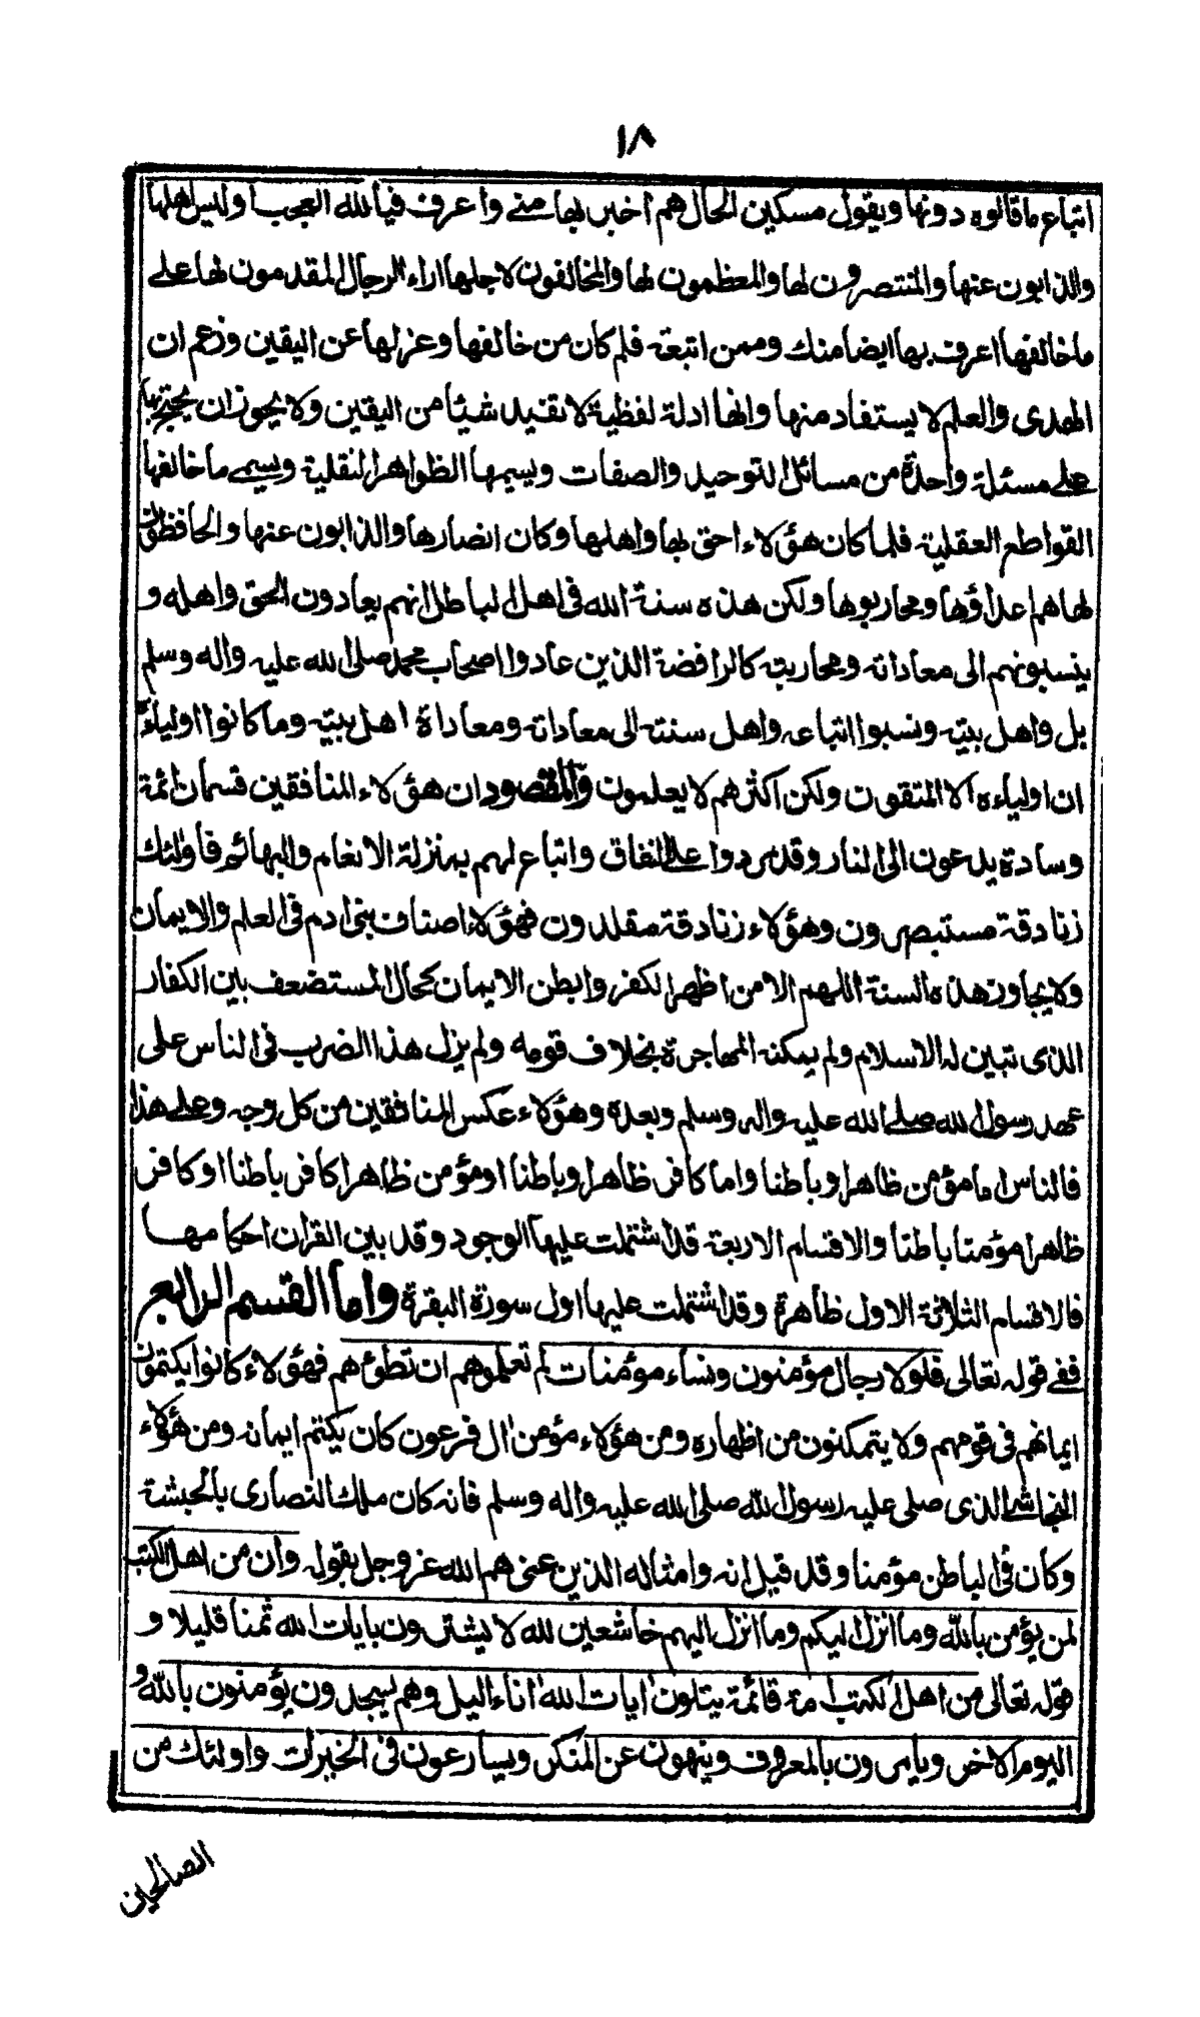 ١٨
اتباع ما قالوه دونها ويقول مسكين الحال هم اخبر بها منى واعرف فيا لله العجب اوليس اهلها
والذابون عنها والمنتصرون لها والمعظمون لها والمخالفون لاجلها اراء الرجال المقدمون لها على
ما خالفها اعرف بها ايضا منك وممن اتبعته فلم كان من خالفها وعزلها عن اليقين وزعم ان
الهدى والعلم لا يستفاد منها وانها ادلة لفظية لا تفيد شيئا من اليقين ولا يجوز ان يحتج بها
على مسئلة واحدة من مسائل التوحيد والصفات ويسميها الظواهر النقلية ويسمى ما خالفها
القواطع العقلية فلما كان هؤلاء احق بها واهلها وكان انصارها والذابون عنها والحافظون
لها هم اعداؤها ومحاربوها ولكن هذه سنة الله فى اهل الباطل انهم يعادون الحق واهله و
ينسبونهم الى معاداته ومحاربته كالرافضة الذين عادوا اصحاب محمد صلى الله عليه واله وسلم
بل واهل بيته ونسبوا اتباعه واهل سنته الى معاداته ومعاداة اهل بيته وما كانوا اولياءه
ان اولياءه الا المتقون ولكن اكثرهم لا يعلمون والمقصود ان هؤلاء المنافقين قسمان ائمة
وسادة يدعون الى النار وقد مردوا على النفاق واتباع لهم بمنزلة الانعام والبهائم فاولئك
زنادقة مستبصرون وهؤلاء زنادقة مقلدون فهؤلاء اصناف بنى ادم فى العلم والايمان
ولا يجاوز هذه السنة اللهم الا من اظهر الكفر وابطن الايمان كحال المستضعف بين الكفار
الذى تبين له الاسلام ولم يمكنه المهاجرة بخلاف قومه ولم يزل هذا الضرب فى الناس على
عهد رسول الله صلى الله عليه واله وسلم وبعده وهؤلاء عكس المنافقين من كل وجه وعلى هذا
فالناس اما مؤمن ظاهرا وباطنا واما كافر ظاهرا وباطنا او مؤمن ظاهرا كافر باطنا او كافر
ظاهرا مؤمنا باطنا والاقسام الاربعة قد اشتملت عليها الوجود وقد بين القران احكامها
فالاقسام الثلاثة الاول ظاهرة وقد اشتملت عليها اول سورة البقرة واما القسم الرابع
ففى قوله تعالى فلولا رجال مؤمنون ونساء مؤمنات لم تعلموهم ان تطؤهم فهؤلاء كانوا يكتمون
ايمانهم فى قومهم ولا يتمكنون من اظهاره ومن هؤلاء مؤمن ال فرعون كان يكتم ايمانه ومن هؤلاء
النجاشى الذى صلى عليه رسول الله صلى الله عليه واله وسلم فانه كان ملك النصارى بالحبشة
وكان فى الباطن مؤمنا وقد قيل انه وامثاله الذين عنى هم الله عز وجل بقوله وان من اهل الكتب
لمن يؤمن بالله وما انزل اليكم وما انزل اليهم خاشعين لله لا يشترون بايات الله ثمنا قليلا و
قوله تعالى من اهل الكتب امة قائمة يتلون ايات الله اناء اليل وهم يسجدون يؤمنون بالله و
اليوم الاخر ويامرون بالمعروف وينهون عن المنكر ويسارعون فى الخيرات واولئك من
الصالحين